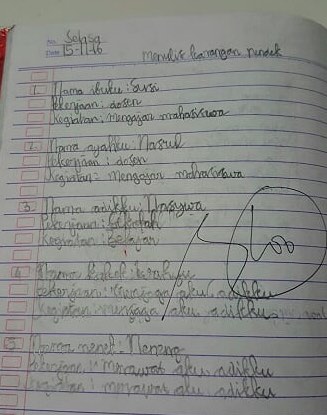 No. Selasa
Date 15-11-16
Menulis karangan pendek
1. Nama ibuku : Susi
Pekerjaan : dosen
Kegiatan : mengajar mahasiswa
2. Nama ayahku : Nasrul
Pekerjaan : dosen
Kegiatan : Mengajar mahasiswa
3. Nama adikku : Hasywa
Pekerjaan : Sekolah
Kegiatan : Belajar
100
4. Nama kakek :
Pekerjaan : menjaga aku, adikku
Kegiatan : menjaga aku adikku
5. Nama nenek : Neneng
Pekerjaan : merawat aku adikku
Kegiatan : merawat aku adikku